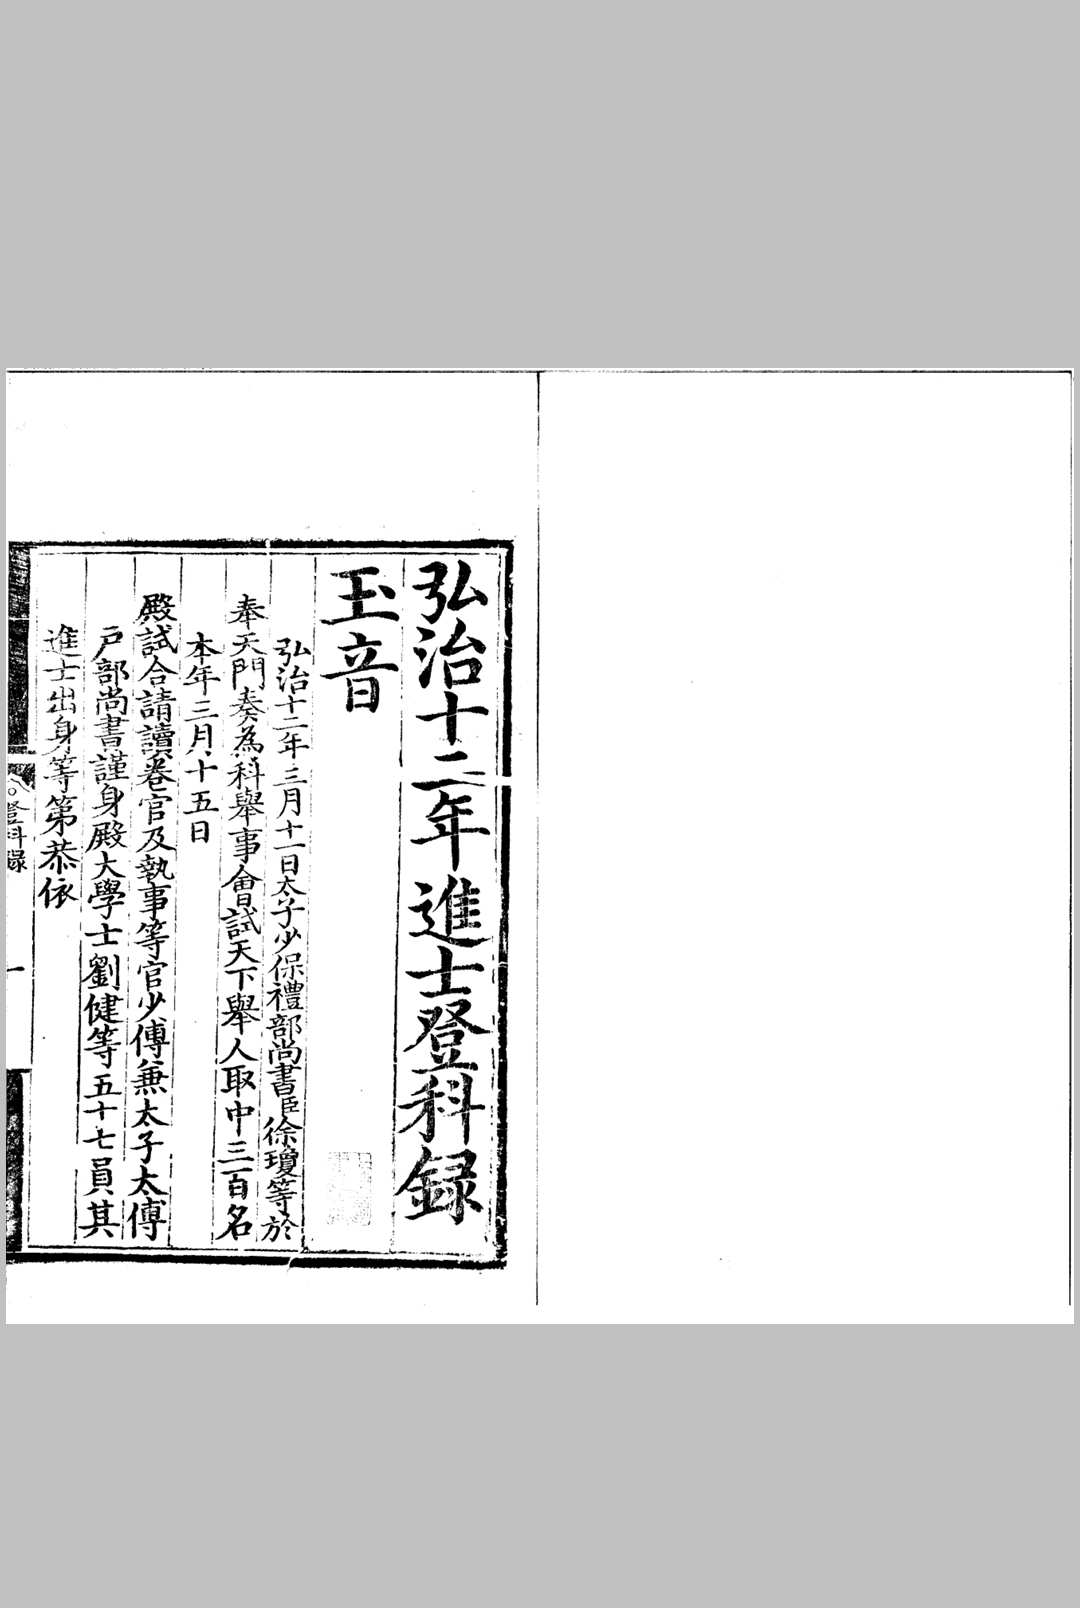 弘治十二年進士登科録
玉音
弘治十二年三月十一日太子少保禮部尚書臣徐瓊等於
奉天門奏為科舉事會試天下舉人取中三百名
本年三月十五日
殿試合請讀卷官及執事等官少傅兼太子太傅
戶部尚書謹身殿大學士劉健等五十七員其
進士出身等第恭依
登科録
一